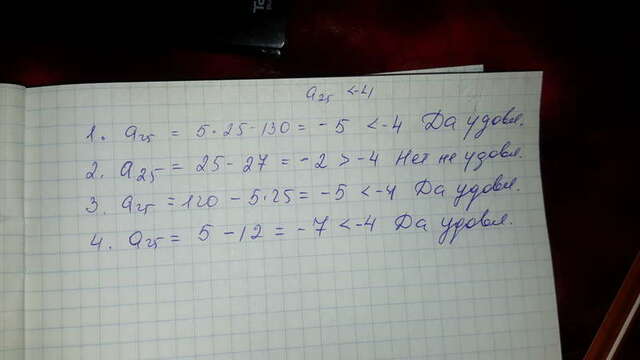 a₂₅ < -4
1. a₂₅ = 5·25-130 = -5 < -4 Да удовл.
2. a₂₅ = 25-27 = -2 > -4 Нет не удовл.
3. a₂₅ = 120 - 5·25 = -5 < -4 Да удовл.
4. a₂₅ = 5 - 12 = -7 < -4 Да удовл.